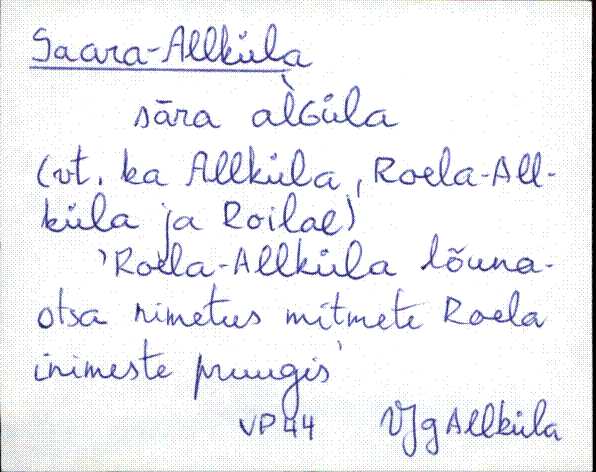 Saara-Allküla
sāra al̀Güla
(vt. ka Allküla, Roela-All-
küla ja Roilae)
'Roela-Allküla lõuna-
otsa nimetus mitmete Roela
inimeste pruugis'
VP 44 VJg Allküla